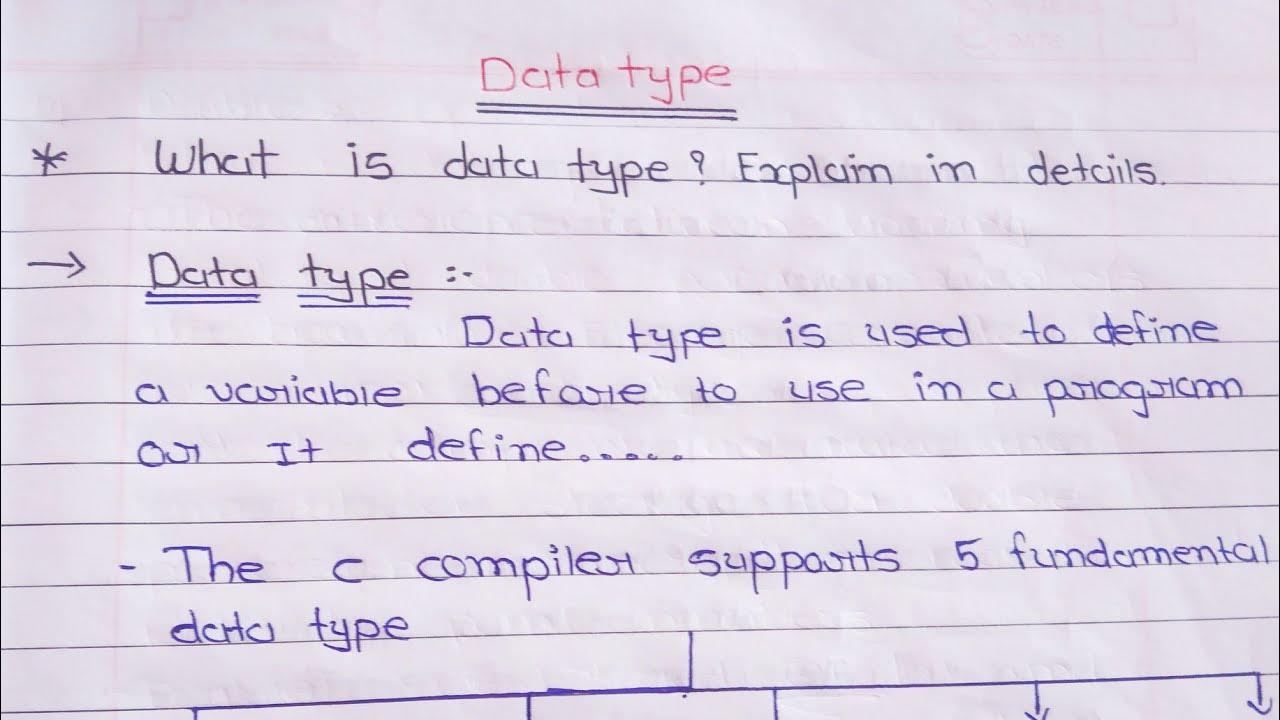 Data type
* What is data type? Explain in details.
→ Data type :-
Data type is used to define
a variable before to use in a program
or It define.....
- The c compiler supports 5 fundamental
data type